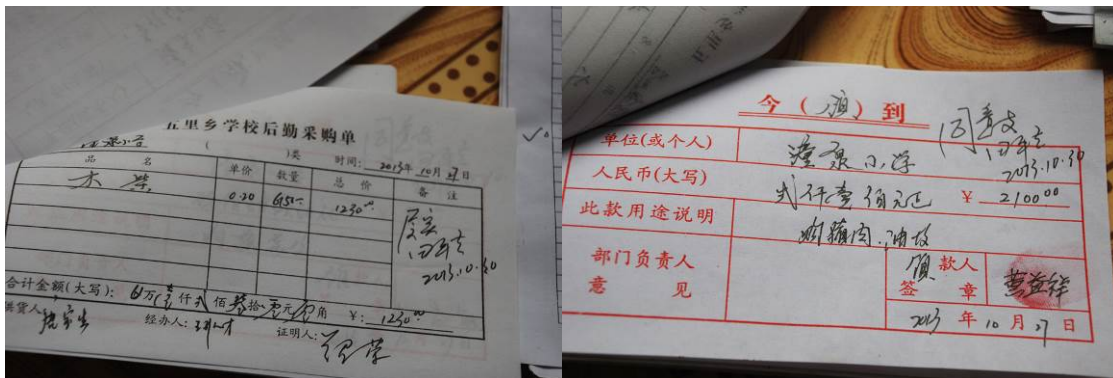 五里乡学校后勤采购单
( )类 时间: 2013年 10月 27日
品 名 单价 数量 总 价 备 注
木柴 0.20 6150 1230.00
同意
2013.10.30
合计金额(大写): 0万壹仟贰佰叁拾零元零角 ¥: 1230.00
供货人:
经办人:
证明人:
今(领)到
单位(或个人) 潼泉小学
同意支
2013.10.30
人民币(大写) 弍仟壹佰元正 ¥ 2100.00
此款用途说明 购猪肉.油款
部门负责人
意 见
领款人
签 章
2013 年 10 月 27 日